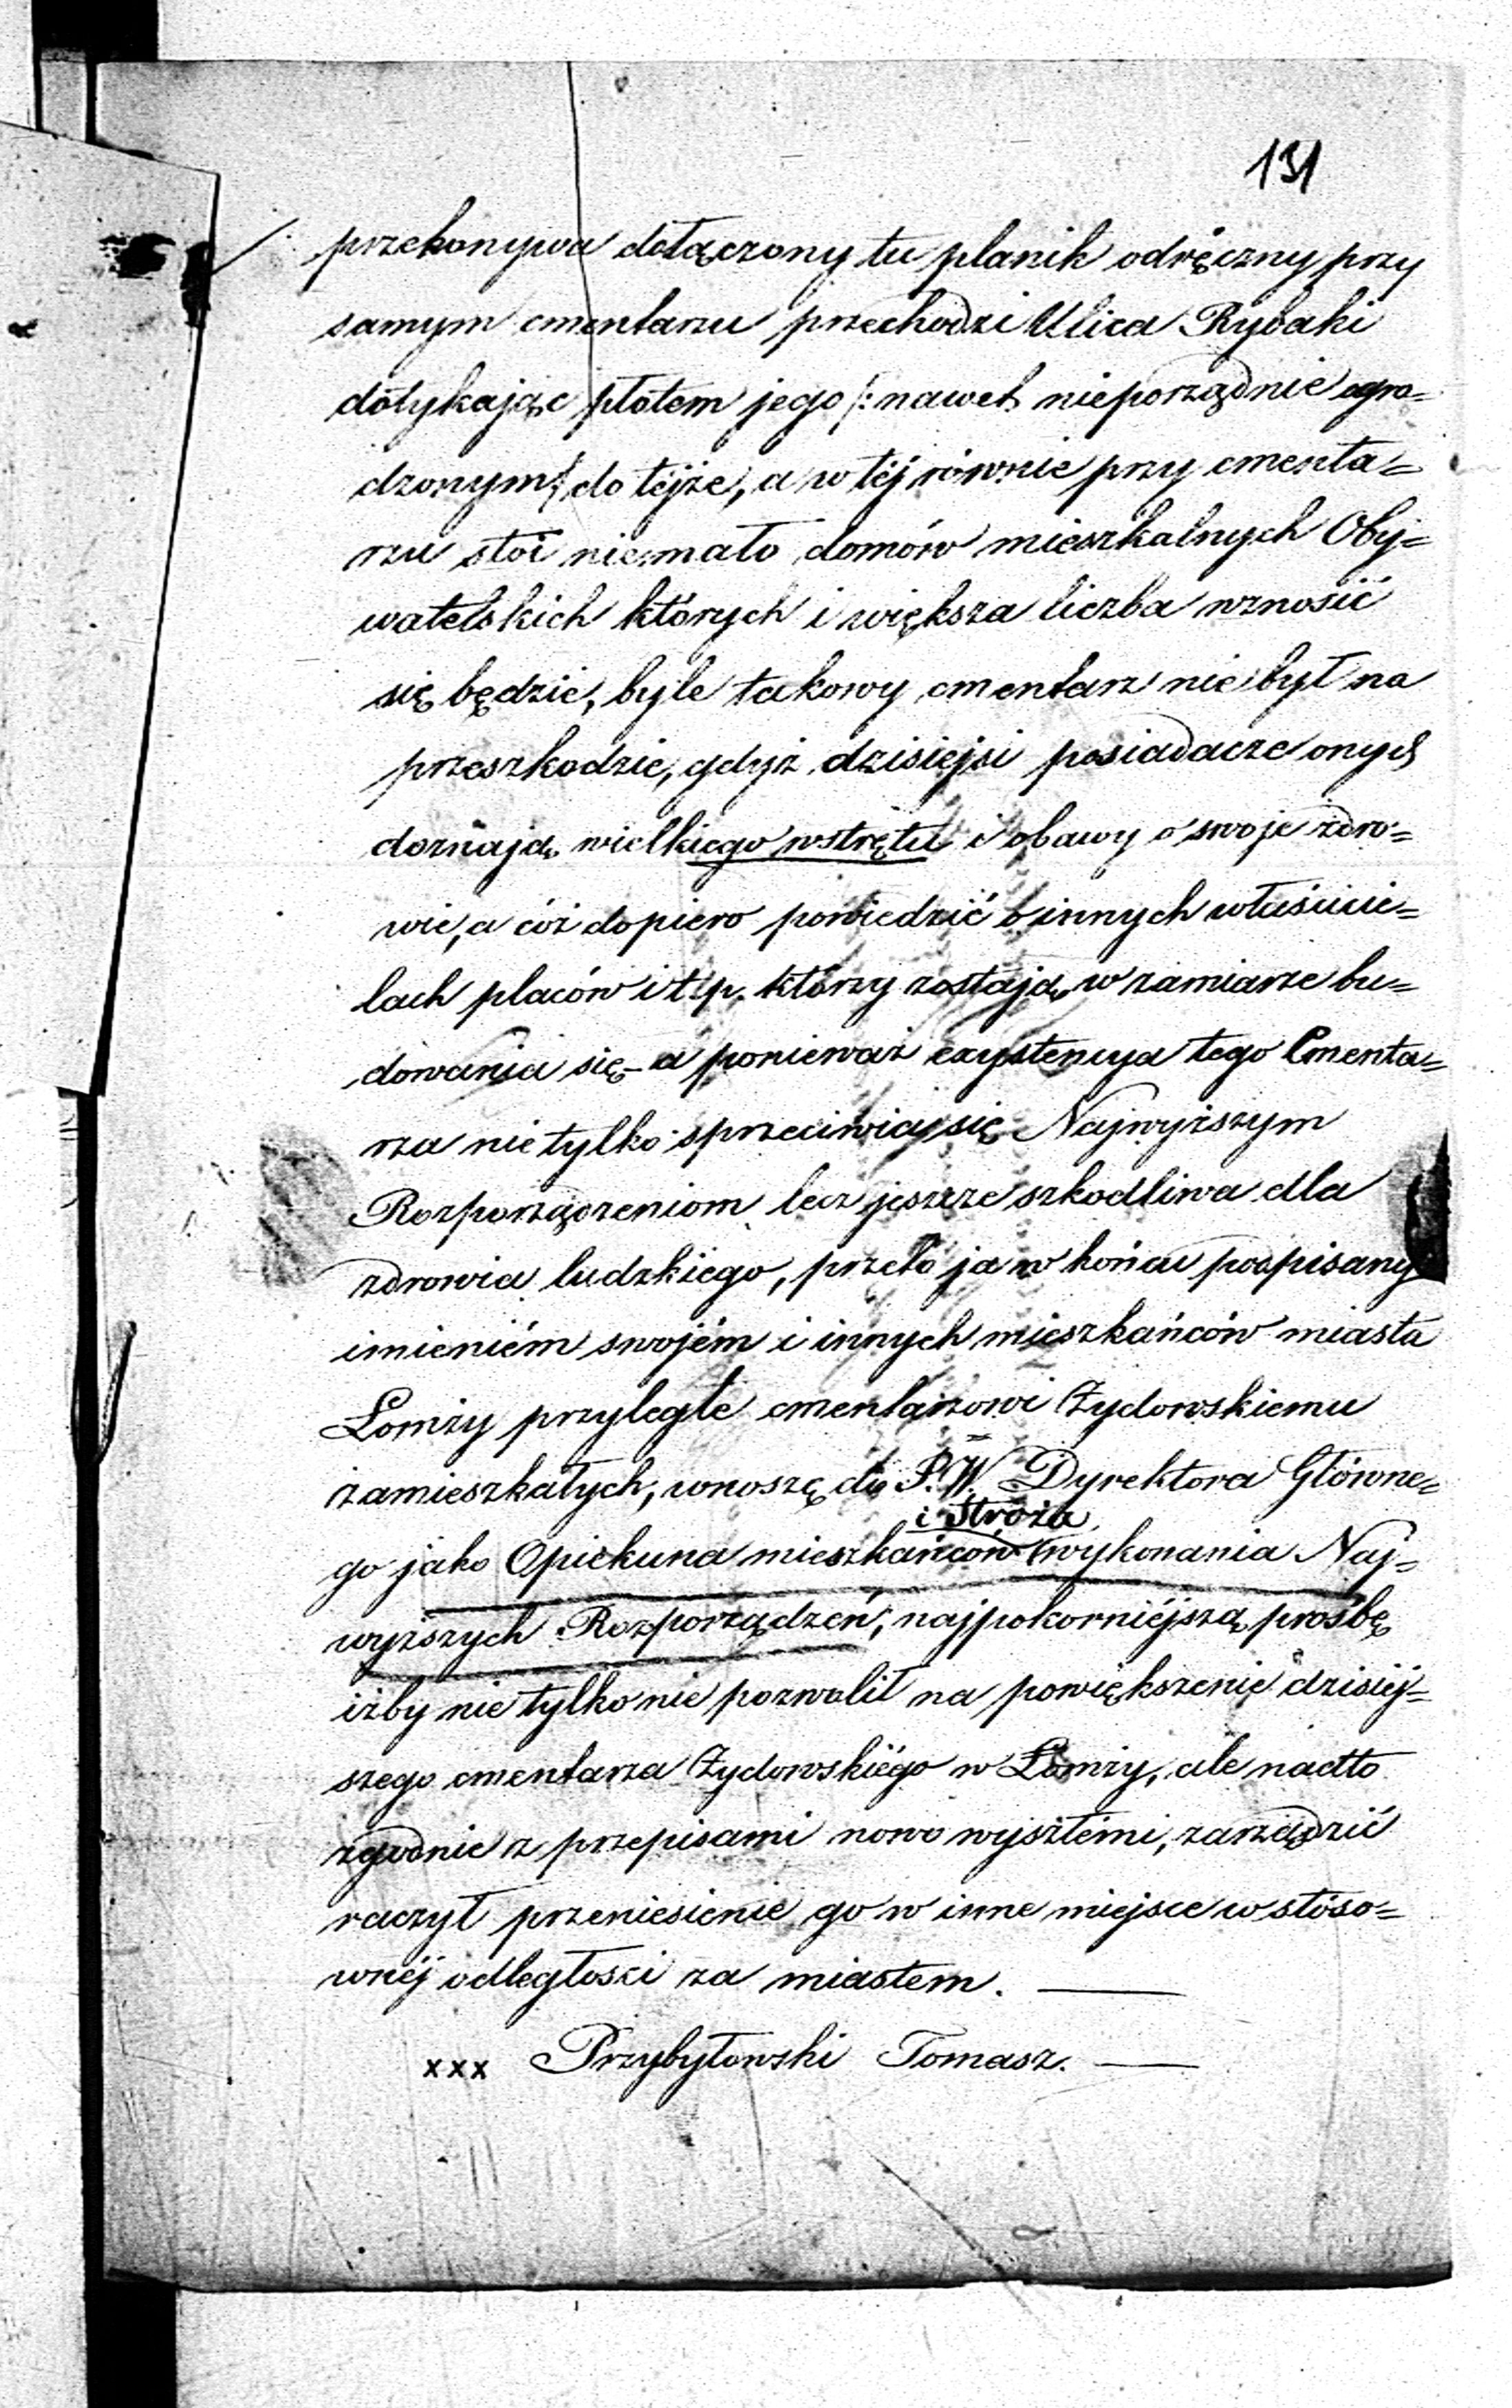 131
przekonywa dołączony tu planik odręczny przy
samym cmentarzu przechodzi Ulica Rybaki
dotykając płotem jego /: nawet nieporządnie ogro=
dzonym :/ do tejże, a w téj równie przy cmenta=
rzu stoi niemało domów mieszkalnych Oby=
watelskich których i większa liczba wznosić
się będzie, byle takowy cmentarz nie był na
przeszkodzie, gdyż dzisiejsi posiadacze onych
doznają wielkiego wstrętu i obawy o swoje zdro=
wie, a cóż dopiero powiedzić o innych właścicie=
lach placów i t. p. którzy zostają w zamiarze bu=
dowania się – a ponieważ exystencya tego Cmenta=
rza nie tylko sprzeciwia się Najwyższym
Rozporządzeniom lecz jeszcze szkodliwa dla
zdrowia ludzkiego, przeto ja w końcu podpisany
imieniém swojém i innych mieszkańców miasta
Łomży przyległe cmentarzowi Żydowskiemu
zamieszkałych, wnoszę do P. W. Dyrektora Główne=
i Stróża
go jako Opiekuna mieszkańców wykonania Naj=
wyższych Rozporządzeń, najpokorniéjszą prośbę
iżby nie tylko nie pozwolił na powiększenie dzisiéj=
szego cmentarza Żydowskiégo w Łomży, ale nadto
zgodnie z przepisami nowo wyszłémi, zarządzić
raczył przeniesienie go w inne miejsce w stóso=
wnéj odległości za miastem. —
xxx Przybyłowski Tomasz. —